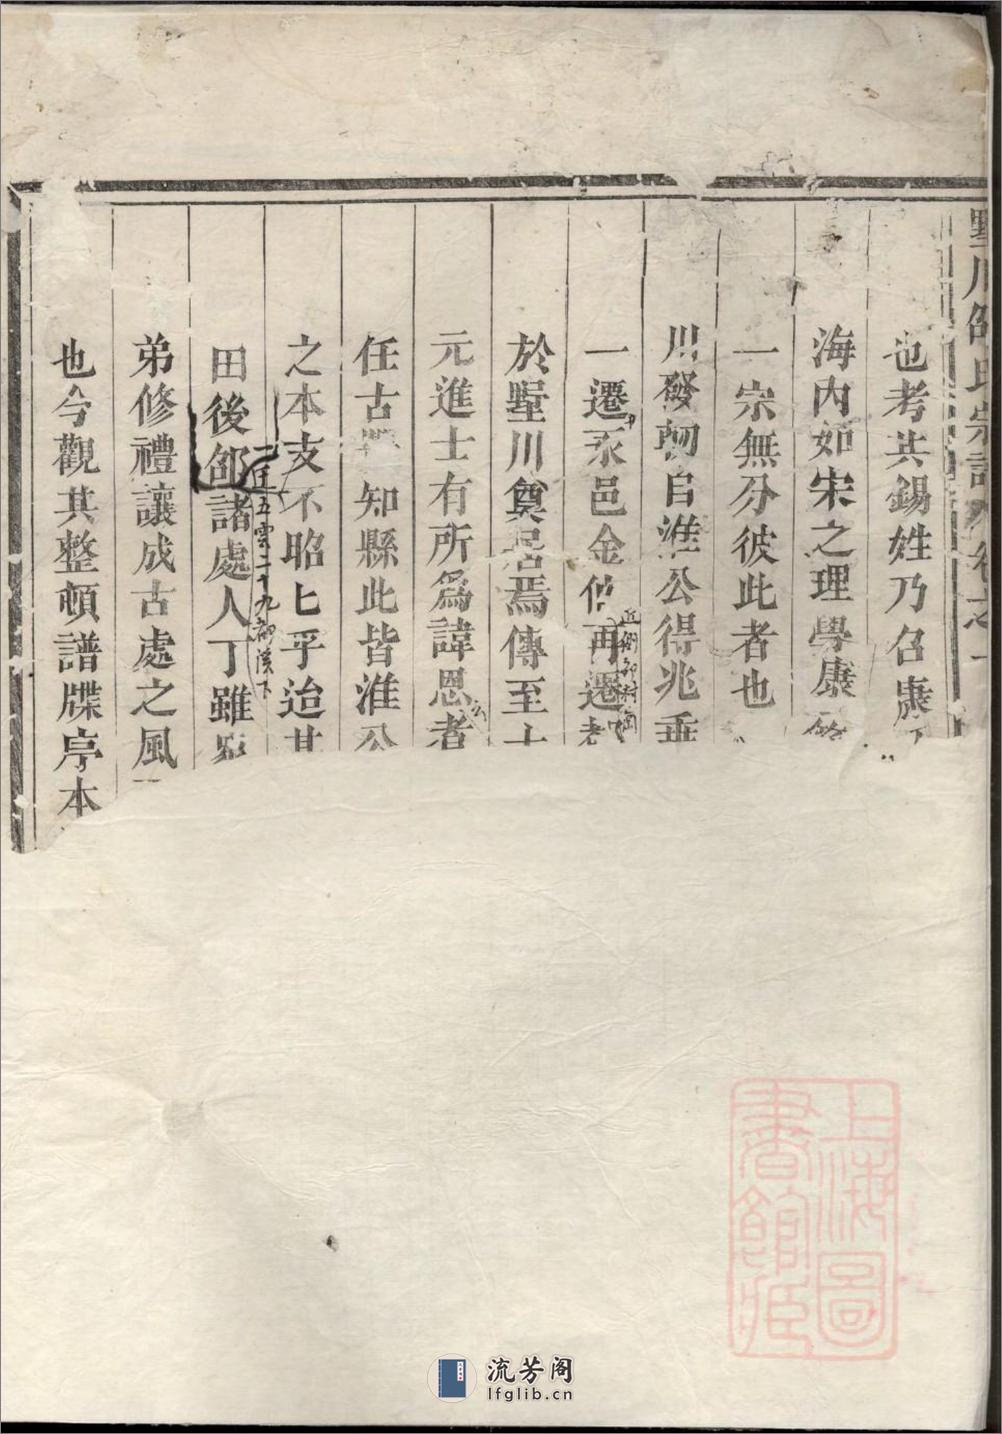 墅川邵氏宗譜卷之一
也考其錫姓乃召康
海內如宋之理學康節
一宗無分彼此者也
川發軔自淮公得兆垂
一遷永邑金仙再遷
於墅川奠居焉傳至士
元進士有所為諱恩者
任古 知縣此皆淮公
之本支不昭匕乎迨其
五雲二十九都溪下
田後邵諸處人丁雖
弟修禮讓成古處之風
也今觀其整頓譜牒序本
上海圖
書館藏
流芳阁
lfglib.cn